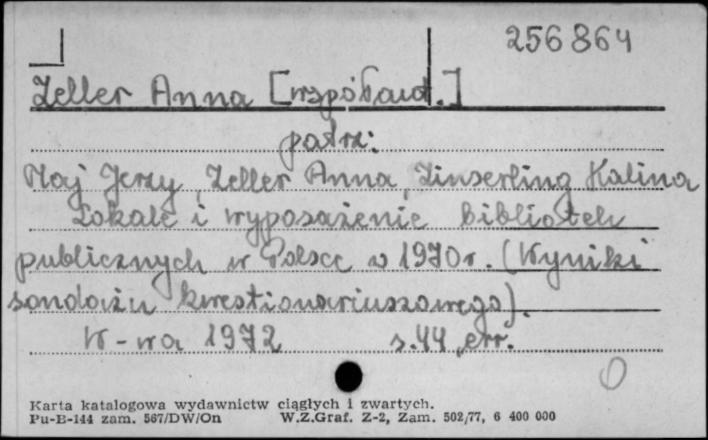 256864
Zeller Anna [współaut.]
patrz:
Maj Jerzy, Zeller Anna, Zinserling Halina
Lokale i wyposażenie bibliotek
publicznych w Polsce w 1970r. (Wyniki
sondażu kwestionariuszowego).
W-wa 1972 s. 44, err.
Karta katalogowa wydawnictw ciągłych i zwartych.
Pu-B-144 zam. 567/DW/On W.Z.Graf. Z-2, Zam. 502/77, 6 400 000